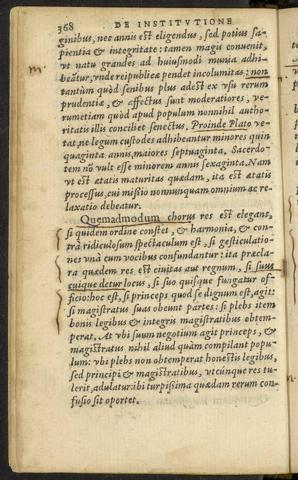 368 DE INSTITVTIONE
ginibus, nec annis est eligendus, sed potius sa-
pientia & integritate: tamen magis conuenit,
vt natu grandes ad huiusmodi munia adhi-
beãtur, vnde reipublicæ pendet incolumitas: non
tantùm quòd senibus plus adest ex vsu rerum
prudentiæ, & affectus sunt moderatiores, ve-
rumetiam quòd apud populum nonnihil autho-
ritatis illis conciliet senectus. Proinde Plato ve-
tat, ne legum custodes adhibeantur minores quin
quaginta annis, maiores septuaginta. Sacerdo-
tem nõ vult esse minorem annis sexaginta. Nam
vt est ætatis maturitas quædam, ita est ætatis
processus, cui missio nonnunquam omnium ac re-
laxatio debeatur.
Quemadmodum chorus res est elegans,
si quidem ordine constet, & harmonia, & con-
trà ridiculosum spectaculum est, si gesticulatio-
nes vnà cum vocibus confundantur: ita præcla-
ra quædam res est ciuitas aut regnum, si suus
cuique detur locus, si suo quisque fungatur of-
ficio: hoc est, si princeps quod se dignum est, agit:
si magistratus suas obeunt partes: si plebs item
bonis legibus & integris magistratibus obtem-
perat. At vbi suum negotium agit princeps, &
magistratus nihil aliud quàm compilant popu-
lum: vbi plebs non obtemperat honestis legibus,
sed principi & magistratibus, vtcúnque res tu-
lerit, adulatur: ibi turpissima quædam rerum con-
fusio sit oportet.